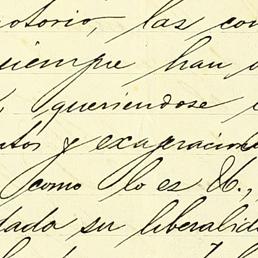 otorio, las con
siempre han
queriendose
ntos y exageracione
como lo es &.,
dado su liberalid